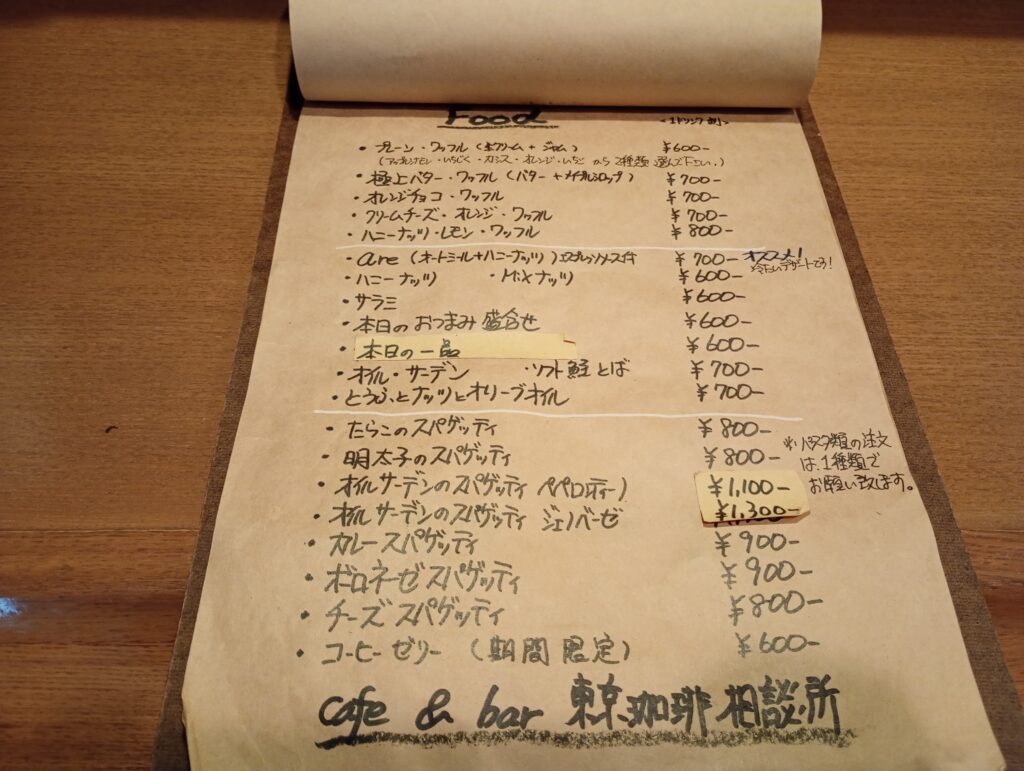 Food
・プレーン・ワッフル（生クリーム＋ジャム） ¥600-
（アップルシナモン・いちじく・カシス・オレンジ・いちご から2種類 選んで下さい。）
・極上バター・ワッフル（バター＋メイプルシロップ） ¥700-
・オレンジチョコ・ワッフル ¥700-
・クリームチーズ・オレンジ・ワッフル ¥700-
・ハニーナッツ・レモン・ワッフル ¥800-
・are（オートミール＋ハニーナッツ）エスプレッソソース付 ¥700- オススメ！
冷たいデザートです！
・ハニーナッツ ・Mixナッツ ¥600-
・サラミ ¥600-
・本日のおつまみ盛合せ ¥600-
・本日の一品 ¥600-
・オイル・サーデン ・ソフト鮭とば ¥700-
・とうふとナッツとオリーブオイル ¥700-
・たらこのスパゲッティ ¥800-
・明太子のスパゲッティ ¥800-
※パスタ類の注文
は、1種類で
お願い致します。
・オイルサーデンのスパゲッティ ペペロンティーノ ¥1,100-
・オイルサーデンのスパゲッティ ジェノベーゼ ¥1,300-
・カレースパゲッティ ¥900-
・ボロネーゼスパゲッティ ¥900-
・チーズスパゲッティ ¥800-
・コーヒーゼリー（期間限定） ¥600-
cafe & bar 東京珈琲相談所